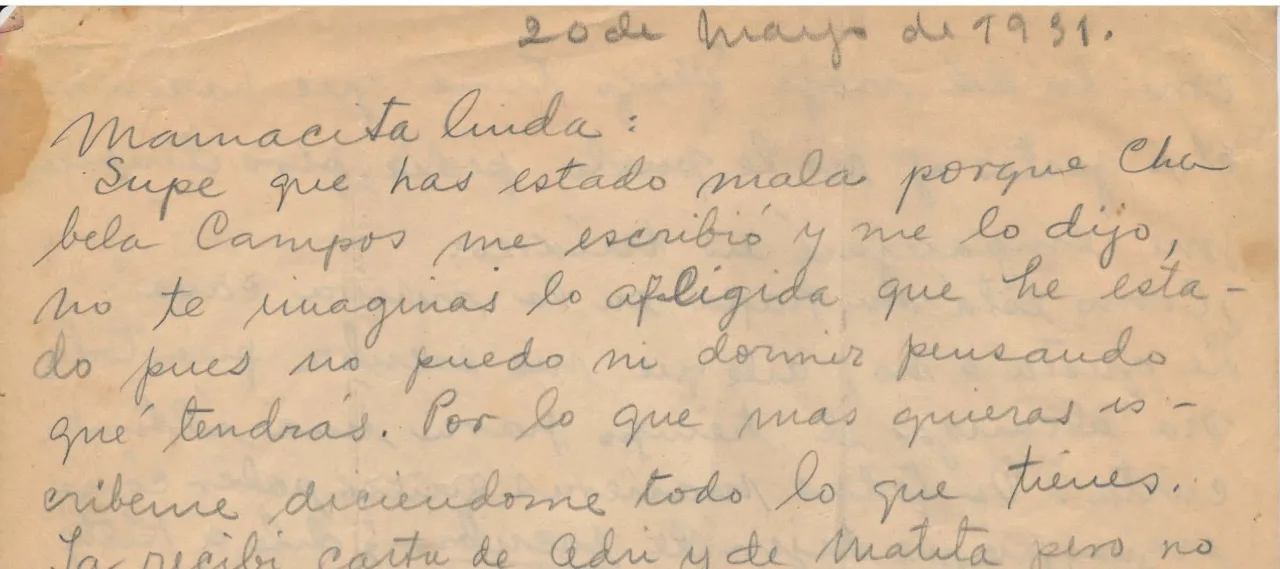 20 de Mayo de 1931.
Mamacita linda:
Supe que has estado mala porque Cha
bela Campos me escribió y me lo dijo,
no te imaginas lo afligida que he esta-
do pues no puedo ni dormir pensando
qué tendrás. Por lo que mas quieras es-
cribeme diciendome todo lo que tienes.
Ya recibi carta de Adri y de Matita pero no